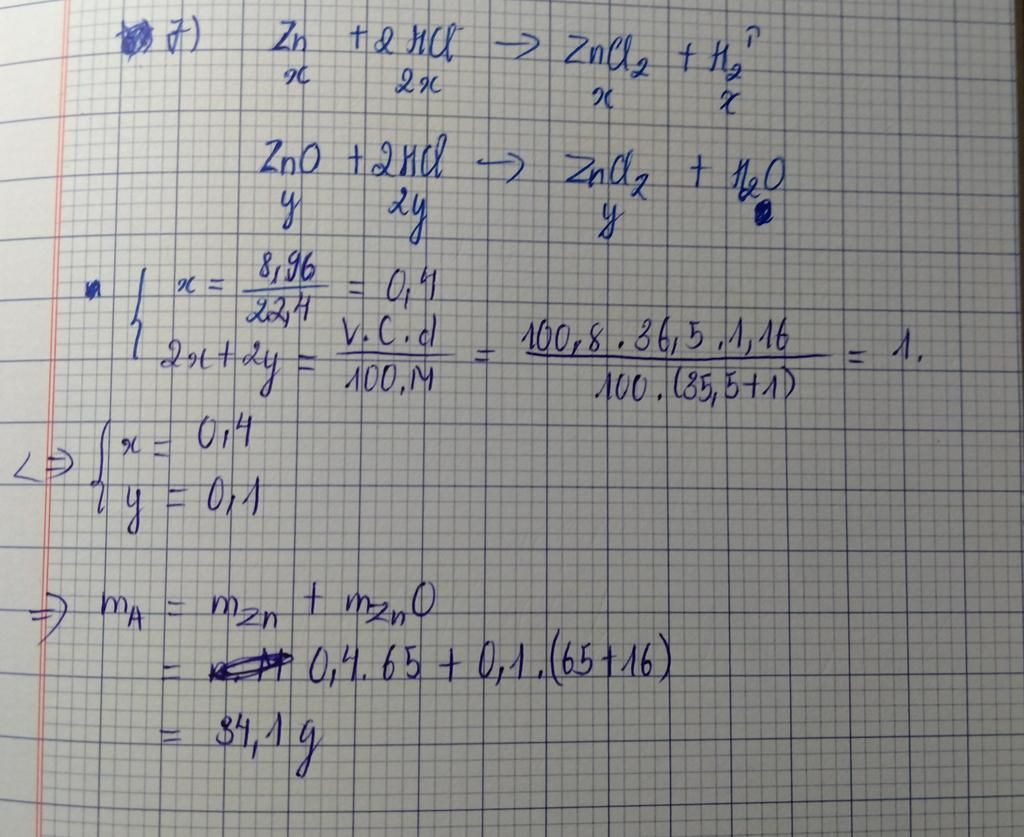 7) Zn + 2HCl → ZnCl₂ + H₂↑
x 2x x x
ZnO + 2HCl → ZnCl₂ + H₂O
y 2y y
{ x = 8,96 / 22,4 = 0,4
2x + 2y = V.C.d / 100.M = 100,8 . 36,5 . 1,16 / 100.(35,5+1) = 1.
<=> { x = 0,4
y = 0,1
=> mA = mZn + mZnO
= 0,4.65 + 0,1.(65+16)
= 34,1 g